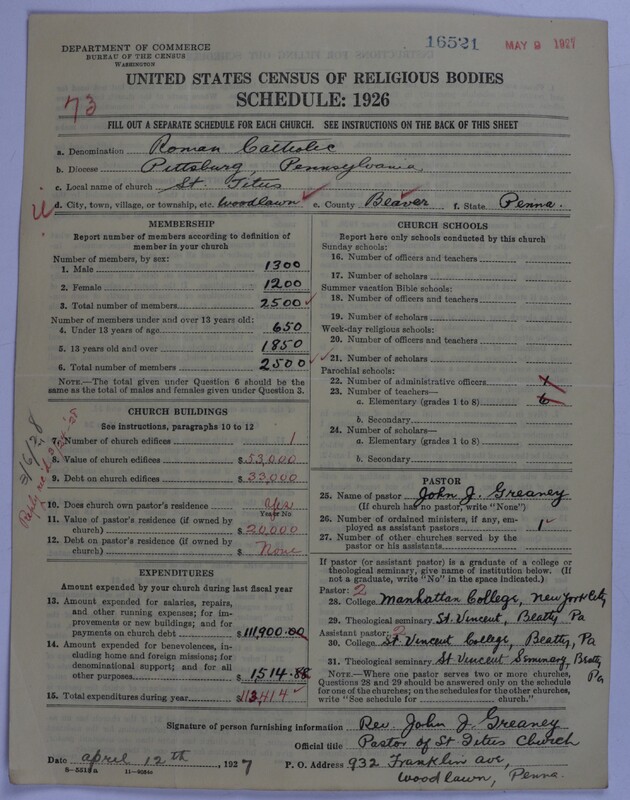 16521 MAY 9 1927
DEPARTMENT OF COMMERCE
BUREAU OF THE CENSUS
WASHINGTON
UNITED STATES CENSUS OF RELIGIOUS BODIES
SCHEDULE: 1926
73
FILL OUT A SEPARATE SCHEDULE FOR EACH CHURCH. SEE INSTRUCTIONS ON THE BACK OF THIS SHEET
a. Denomination Roman Catholic
b. Diocese Pittsburg Pennsylvania
c. Local name of church St. Titus
d. City, town, village, or township, etc. Woodlawn e. County Beaver f. State Penna.
MEMBERSHIP
Report number of members according to definition of
member in your church
Number of members, by sex:
1. Male 1300
2. Female 1200
3. Total number of members 2500
Number of members under and over 13 years old:
4. Under 13 years of age 650
5. 13 years old and over 1850
6. Total number of members 2500
NOTE.—The total given under Question 6 should be the
same as the total of males and females given under Question 3.
CHURCH BUILDINGS
See instructions, paragraphs 10 to 12
7. Number of church edifices 1
8. Value of church edifices $ 53,000
9. Debt on church edifices $ 33,000
10. Does church own pastor's residence Yes
Yes or No
11. Value of pastor's residence (if owned by
church) $ 20,000
12. Debt on pastor's residence (if owned by
church) $ None
EXPENDITURES
Amount expended by your church during last fiscal year
13. Amount expended for salaries, repairs,
and other running expenses; for im-
provements or new buildings; and for
payments on church debt $ 111900.00
14. Amount expended for benevolences, in-
cluding home and foreign missions; for
denominational support; and for all
other purposes $ 1514.88
15. Total expenditures during year $ 113,414
CHURCH SCHOOLS
Report here only schools conducted by this church
Sunday schools:
16. Number of officers and teachers
17. Number of scholars
Summer vacation Bible schools:
18. Number of officers and teachers
19. Number of scholars
Week-day religious schools:
20. Number of officers and teachers
21. Number of scholars
Parochial schools:
22. Number of administrative officers
23. Number of teachers—
a. Elementary (grades 1 to 8)
b. Secondary
24. Number of scholars—
a. Elementary (grades 1 to 8)
b. Secondary
PASTOR
25. Name of pastor John J. Greaney
(If church has no pastor, write "None")
26. Number of ordained ministers, if any, em-
ployed as assistant pastors 1
27. Number of other churches served by the
pastor or his assistants
If pastor (or assistant pastor) is a graduate of a college or
theological seminary, give name of institution below. (If
not a graduate, write "No" in the space indicated.)
Pastor: 2
28. College Manhattan College, New York City
29. Theological seminary St. Vincent, Beatty Pa
Assistant pastor: 2
30. College St Vincent College, Beatty, Pa
31. Theological seminary St. Vincent Seminary, Beatty
Pa
NOTE.—Where one pastor serves two or more churches,
Questions 28 and 29 should be answered only on the schedule
for one of the churches; on the schedules for the other churches,
write "See schedule for church."
Signature of person furnishing information Rev. John J Greaney
Official title Pastor of St Titus Church
Date April 12th, 1927 P. O. Address 932 Franklin ave,
8-5518a 11-9684a Woodlawn, Penna.